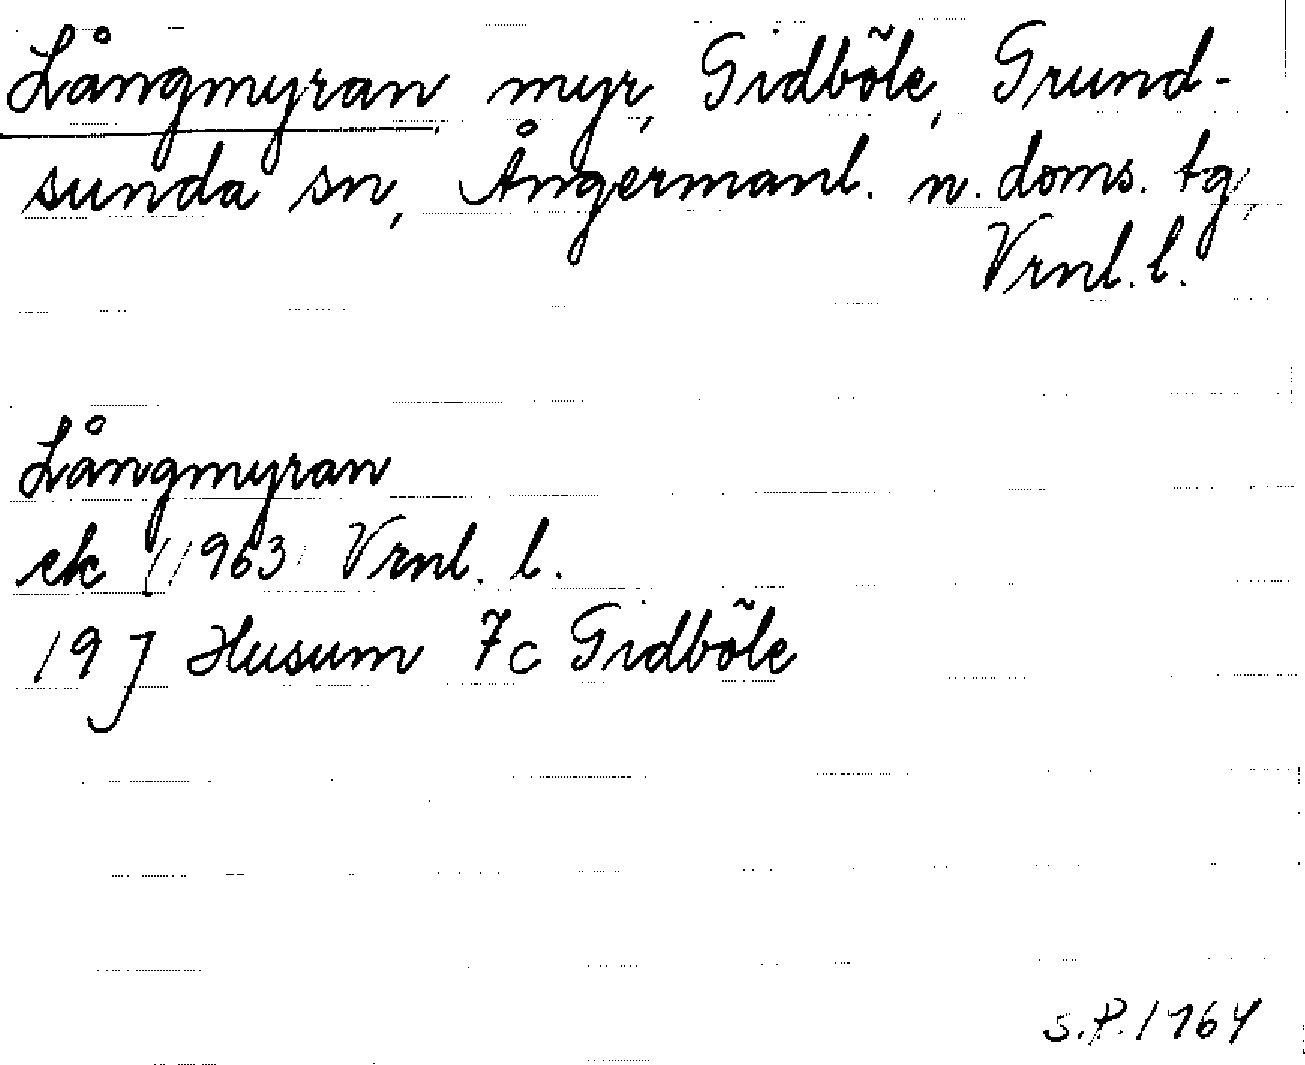 Långmyran, myr, Gidböle, Grund-
sunda sn, Ångermanl. n. doms. tg,
Vrnl. l.
Långmyran
ek 1963 Vrnl. l.
19 J Husum 7c Gidböle
S.P. 1964